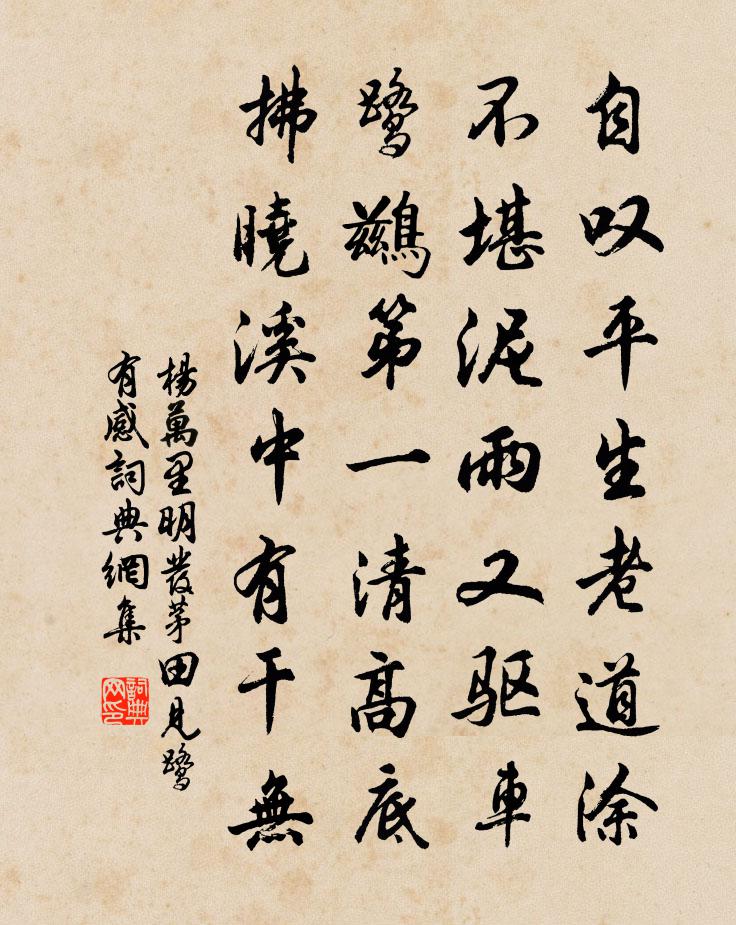 自叹平生老道涂
不堪泥雨又驱車
鹭鷀第一清高底
拂曉溪中有干無
楊萬里明發茅田見鹭
有感詞典網集
詞典网印